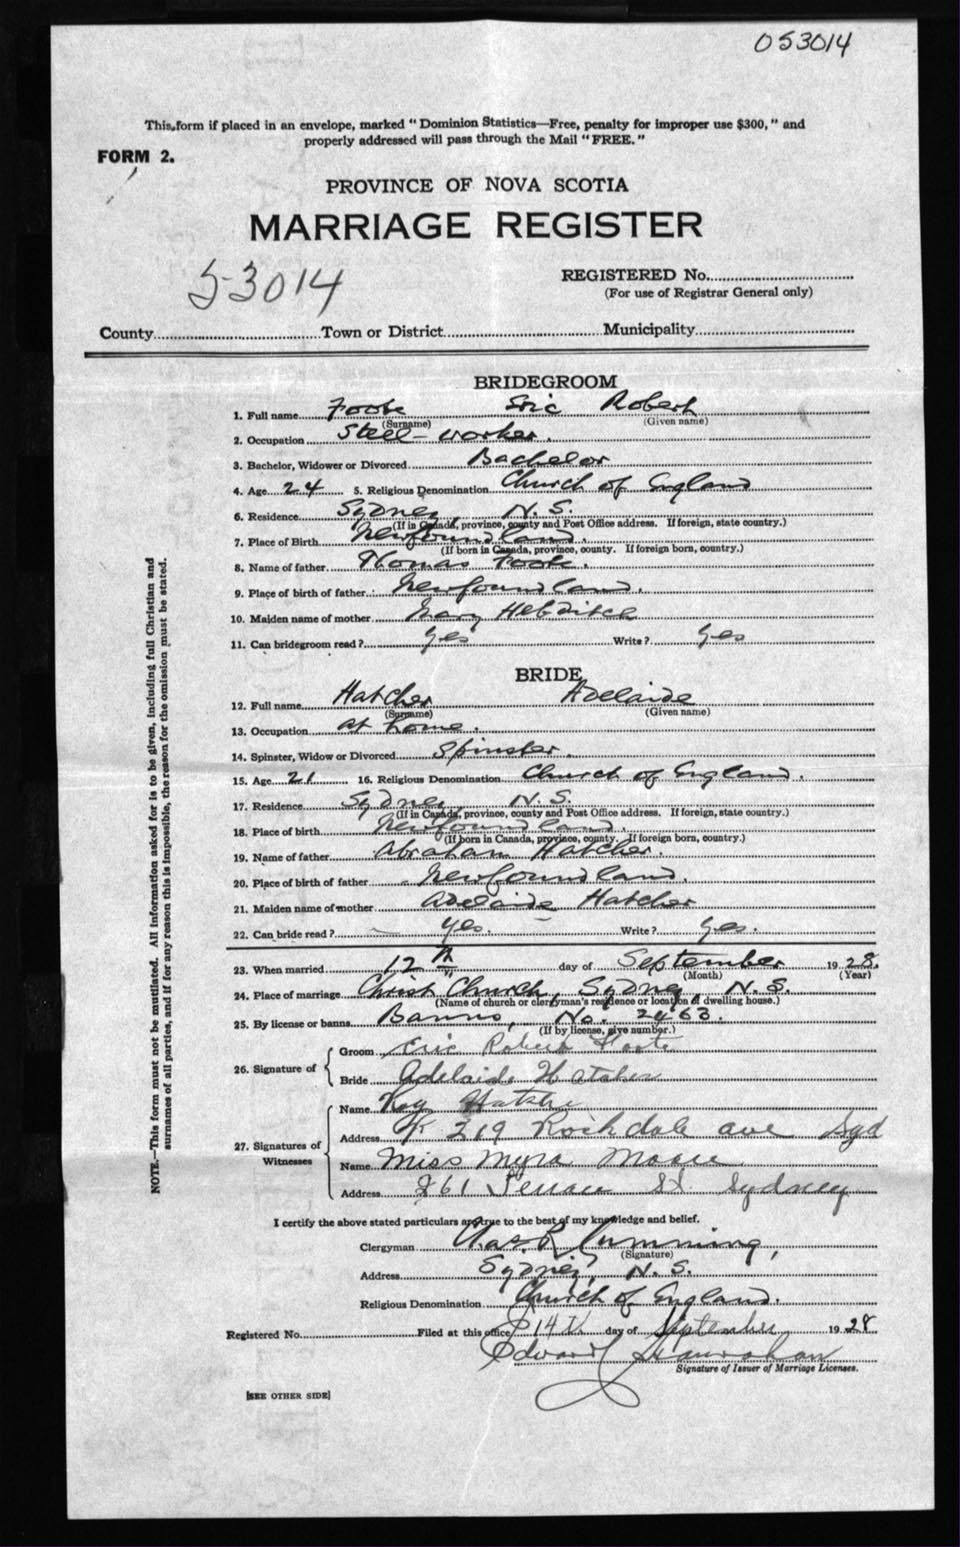 053014
This form if placed in an envelope, marked "Dominion Statistics—Free, penalty for improper use $300," and
properly addressed will pass through the Mail "FREE."
FORM 2.
PROVINCE OF NOVA SCOTIA
MARRIAGE REGISTER
53014
REGISTERED No.
(For use of Registrar General only)
County Town or District Municipality
BRIDEGROOM
1. Full name Foote Eric Robert
(Surname) (Given name)
2. Occupation Steel-worker.
3. Bachelor, Widower or Divorced Bachelor
4. Age 24 5. Religious Denomination Church of England
6. Residence Sydney, N.S.
(If in Canada, province, county and Post Office address. If foreign, state country.)
7. Place of Birth Newfoundland.
(If born in Canada, province, county. If foreign born, country.)
8. Name of father Thomas Foote.
9. Place of birth of father Newfoundland.
10. Maiden name of mother Mary Hebditch
11. Can bridegroom read? Yes Write? Yes
BRIDE
12. Full name Hatcher Adelaide
(Surname) (Given name)
13. Occupation at home.
14. Spinster, Widow or Divorced Spinster.
15. Age 21 16. Religious Denomination Church of England.
17. Residence Sydney N.S.
(If in Canada, province, county and Post Office address. If foreign, state country.)
18. Place of birth Newfoundland.
(If born in Canada, province, county. If foreign born, country.)
19. Name of father Abraham Hatcher.
20. Place of birth of father Newfoundland.
21. Maiden name of mother Adelaide Hatcher
22. Can bride read? Yes. Write? Yes.
23. When married 12th day of September 1928.
(Month) (Year)
24. Place of marriage Christ Church, Sydney, N.S.
(Name of church or clergyman's residence or location of dwelling house.)
25. By license or banns Banns, No. 2463.
(If by license, give number.)
26. Signature of
Groom Eric Robert Foote
Bride Adelaide Hatcher
27. Signatures of Witnesses
Name Ray Hatcher
Address 219 Rockdale ave Syd
Name Miss Myra Moore
Address 261 Terrace St. Sydney
I certify the above stated particulars are true to the best of my knowledge and belief.
Clergyman Chas. R. Cumming,
(Signature)
Address Sydney, N.S.
Religious Denomination Church of England.
Registered No. Filed at this office 14th day of September 1928
Edward
Signature of Issuer of Marriage Licenses.
[SEE OTHER SIDE]
NOTE.—This form must not be mutilated. All information asked for is to be given, including full Christian and
surnames of all parties, and if for any reason this is impossible, the reason for the omission must be stated.